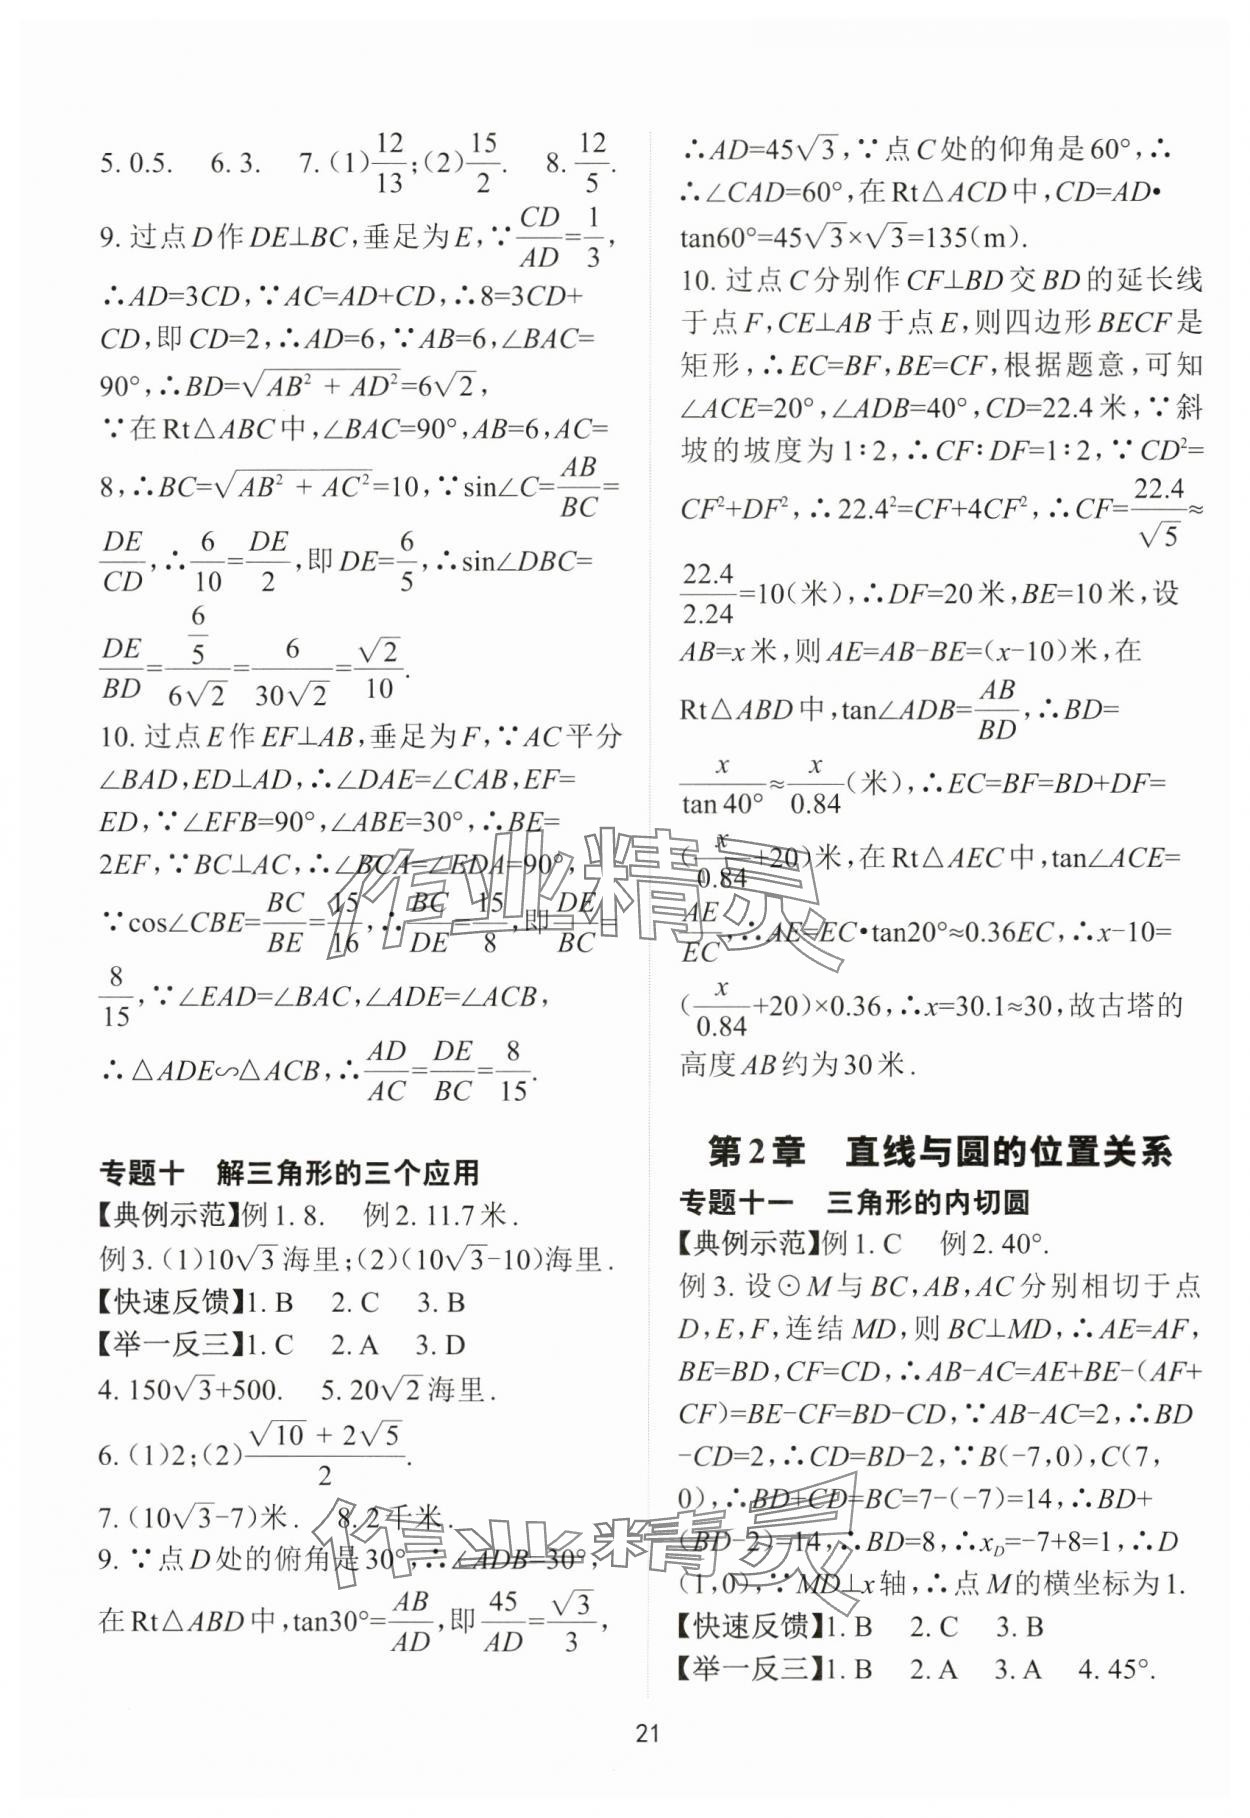 5. 0.5. 6. 3. 7. (1)12/13;(2)15/2. 8. 12/5.
9. 过点D作DE⊥BC,垂足为E,∵CD/AD=1/3,
∴AD=3CD,∵AC=AD+CD,∴8=3CD+
CD,即CD=2,∴AD=6,∵AB=6,∠BAC=
90°,∴BD=√(AB²+AD²)=6√2,
∵在Rt△ABC中,∠BAC=90°,AB=6,AC=
8,∴BC=√(AB²+AC²)=10,∵sin∠C=AB/BC=
DE/CD,∴6/10=DE/2,即DE=6/5,∴sin∠DBC=
DE/BD=(6/5)/(6√2)=6/(30√2)=√2/10.
10. 过点E作EF⊥AB,垂足为F,∵AC平分
∠BAD,ED⊥AD,∴∠DAE=∠CAB,EF=
ED,∵∠EFB=90°,∠ABE=30°,∴BE=
2EF,∵BC⊥AC,∴∠BCA=∠EDA=90°,
∵cos∠CBE=BC/BE=15/16,∴BC/DE=15/8,即DE/BC=
8/15,∵∠EAD=∠BAC,∠ADE=∠ACB,
∴△ADE∽△ACB,∴AD/AC=DE/BC=8/15.
专题十 解三角形的三个应用
【典例示范】例1. 8. 例2. 11.7米.
例3. (1)10√3海里;(2)(10√3-10)海里.
【快速反馈】1. B 2. C 3. B
【举一反三】1. C 2. A 3. D
4. 150√3+500. 5. 20√2海里.
6. (1)2;(2)(√10+2√5)/2.
7. (10√3-7)米. 8. 2千米.
9. ∵点D处的俯角是30°,∴∠ADB=30°,
在Rt△ABD中,tan30°=AB/AD,即45/AD=√3/3,
∴AD=45√3,∵点C处的仰角是60°,∴
∴∠CAD=60°,在Rt△ACD中,CD=AD•
tan60°=45√3×√3=135(m).
10. 过点C分别作CF⊥BD交BD的延长线
于点F,CE⊥AB于点E,则四边形BECF是
矩形,∴EC=BF,BE=CF,根据题意,可知
∠ACE=20°,∠ADB=40°,CD=22.4米,∵斜
坡的坡度为1∶2,∴CF∶DF=1∶2,∵CD²=
CF²+DF²,∴22.4²=CF+4CF²,∴CF=22.4/√5≈
22.4/2.24=10(米),∴DF=20米,BE=10米,设
AB=x米,则AE=AB-BE=(x-10)米,在
Rt△ABD中,tan∠ADB=AB/BD,∴BD=
x/tan 40°≈x/0.84(米),∴EC=BF=BD+DF=
(x/0.84+20)米,在Rt△AEC中,tan∠ACE=
AE/EC,∴AE=EC•tan20°≈0.36EC,∴x-10=
(x/0.84+20)×0.36,∴x=30.1≈30,故古塔的
高度AB约为30米.
第2章 直线与圆的位置关系
专题十一 三角形的内切圆
【典例示范】例1. C 例2. 40°.
例3. 设⊙M与BC,AB,AC分别相切于点
D,E,F,连结MD,则BC⊥MD,∴AE=AF,
BE=BD,CF=CD,∴AB-AC=AE+BE-(AF+
CF)=BE-CF=BD-CD,∵AB-AC=2,∴BD
-CD=2,∴CD=BD-2,∵B(-7,0),C(7,
0),∴BD+CD=BC=7-(-7)=14,∴BD+
(BD-2)=14,∴BD=8,∴x_D=-7+8=1,∴D
(1,0),∵MD⊥x轴,∴点M的横坐标为1.
【快速反馈】1. B 2. C 3. B
【举一反三】1. B 2. A 3. A 4. 45°.
21
作业精灵
作业精灵